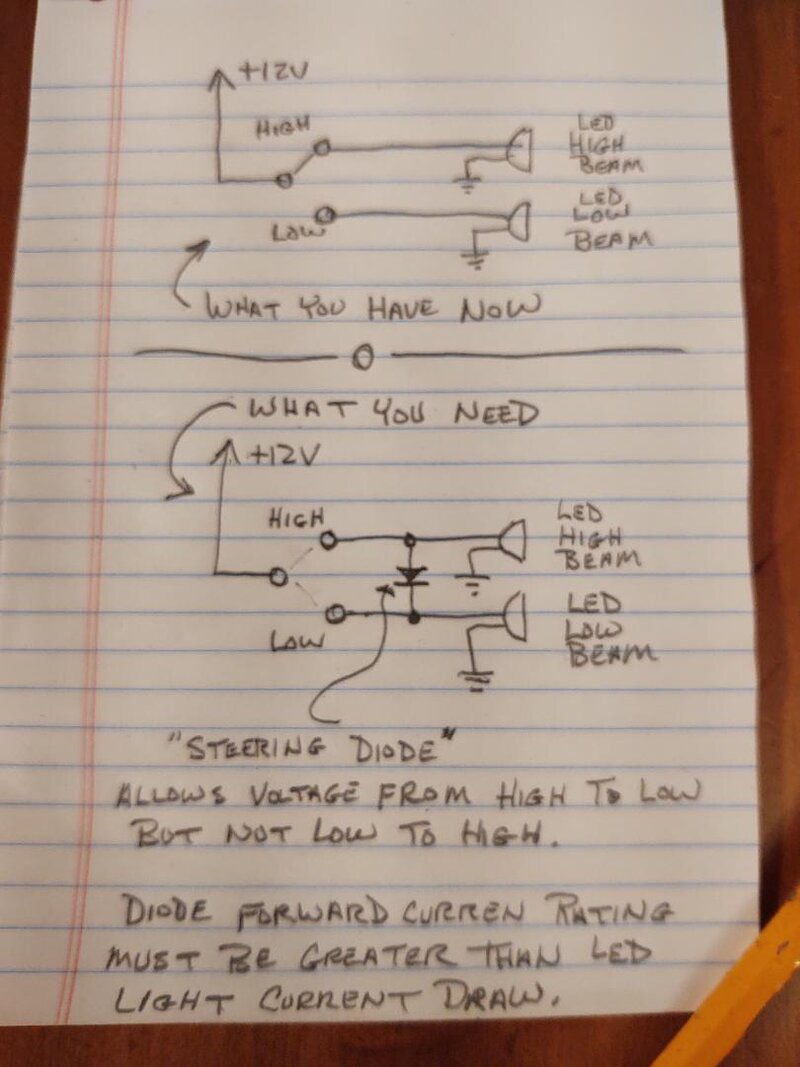 +12V
HIGH
LED
HIGH
BEAM
LOW
LED
LOW
BEAM
WHAT YOU HAVE NOW
WHAT YOU NEED
+12V
HIGH
LED
HIGH
BEAM
LOW
LED
LOW
BEAM
"STEERING DIODE"
ALLOWS VOLTAGE FROM HIGH TO LOW
BUT NOT LOW TO HIGH.
DIODE FORWARD CURREN RATING
MUST BE GREATER THAN LED
LIGHT CURRENT DRAW.